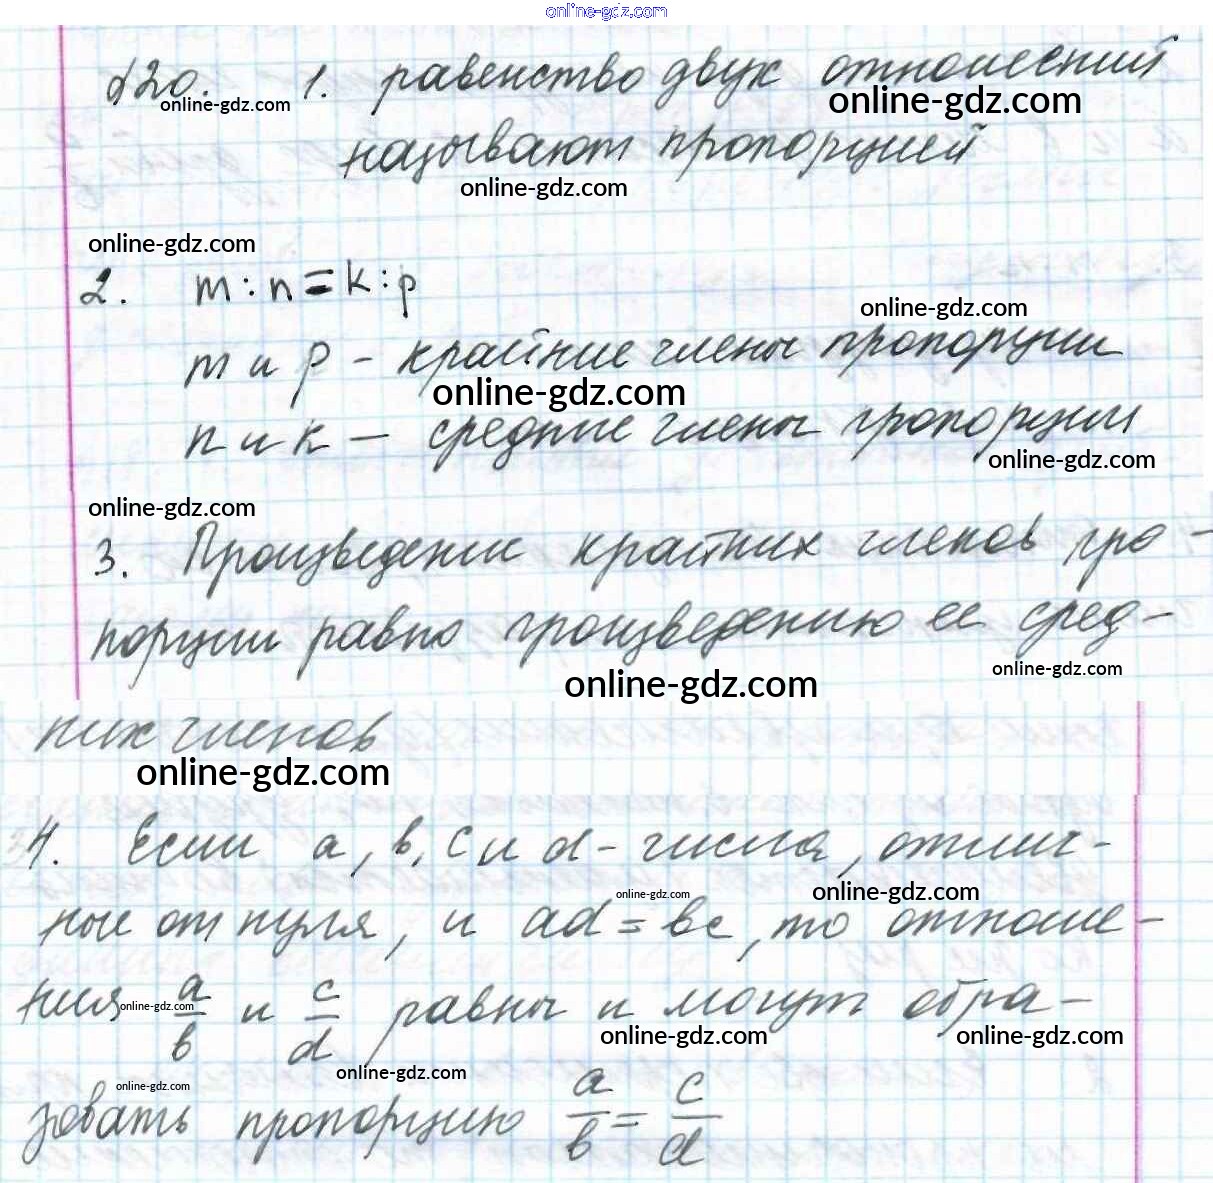 online-gdz.com
§20. 1. равенство двух отношений
online-gdz.com
online-gdz.com
называют пропорцией
online-gdz.com
online-gdz.com
2. m : n = k : p
online-gdz.com
m и p – крайние члены пропорции
online-gdz.com
n и k – средние члены пропорции
online-gdz.com
online-gdz.com
3. Произведение крайних членов про-
порции равно произведению ее сред-
online-gdz.com
online-gdz.com
них членов
online-gdz.com
4. Если a, b, c и d – числа, отлич-
online-gdz.com
online-gdz.com
ные от нуля, и ad = bc, то отноше-
ния a/b и c/d равны и могут обра-
online-gdz.com
online-gdz.com
online-gdz.com
online-gdz.com
online-gdz.com
зовать пропорцию a/b = c/d